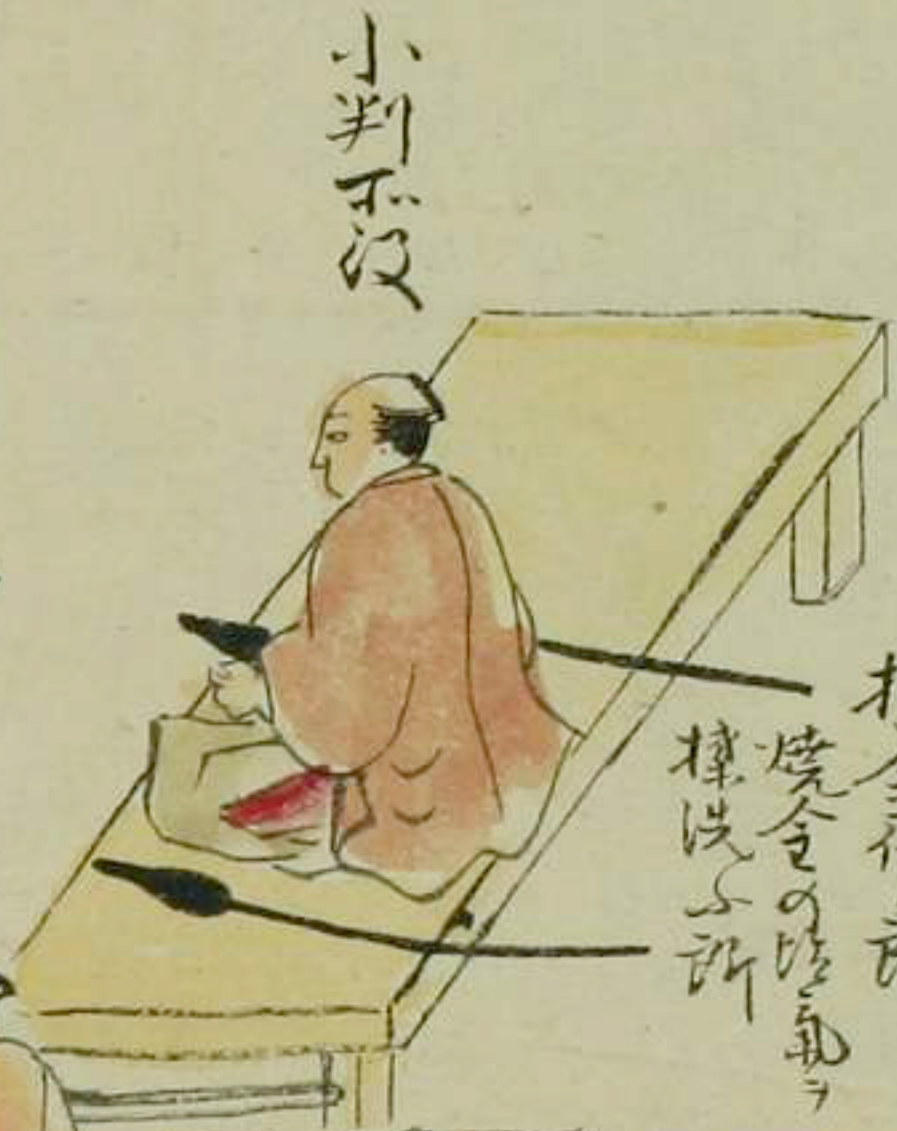 小判所役
焼金の塩氣ヲ
揉洗ふ所